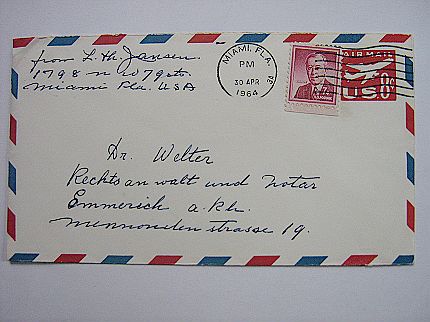 from L. H. Jansen
1798 N W 79 str.
Miami Fla. USA
MIAMI, FLA.
PM
30 APR
1964
AIR MAIL
8¢
US
Dr. Welter
Rechtsanwalt und Notar
Emmerich a. Rh.
strasse 19.